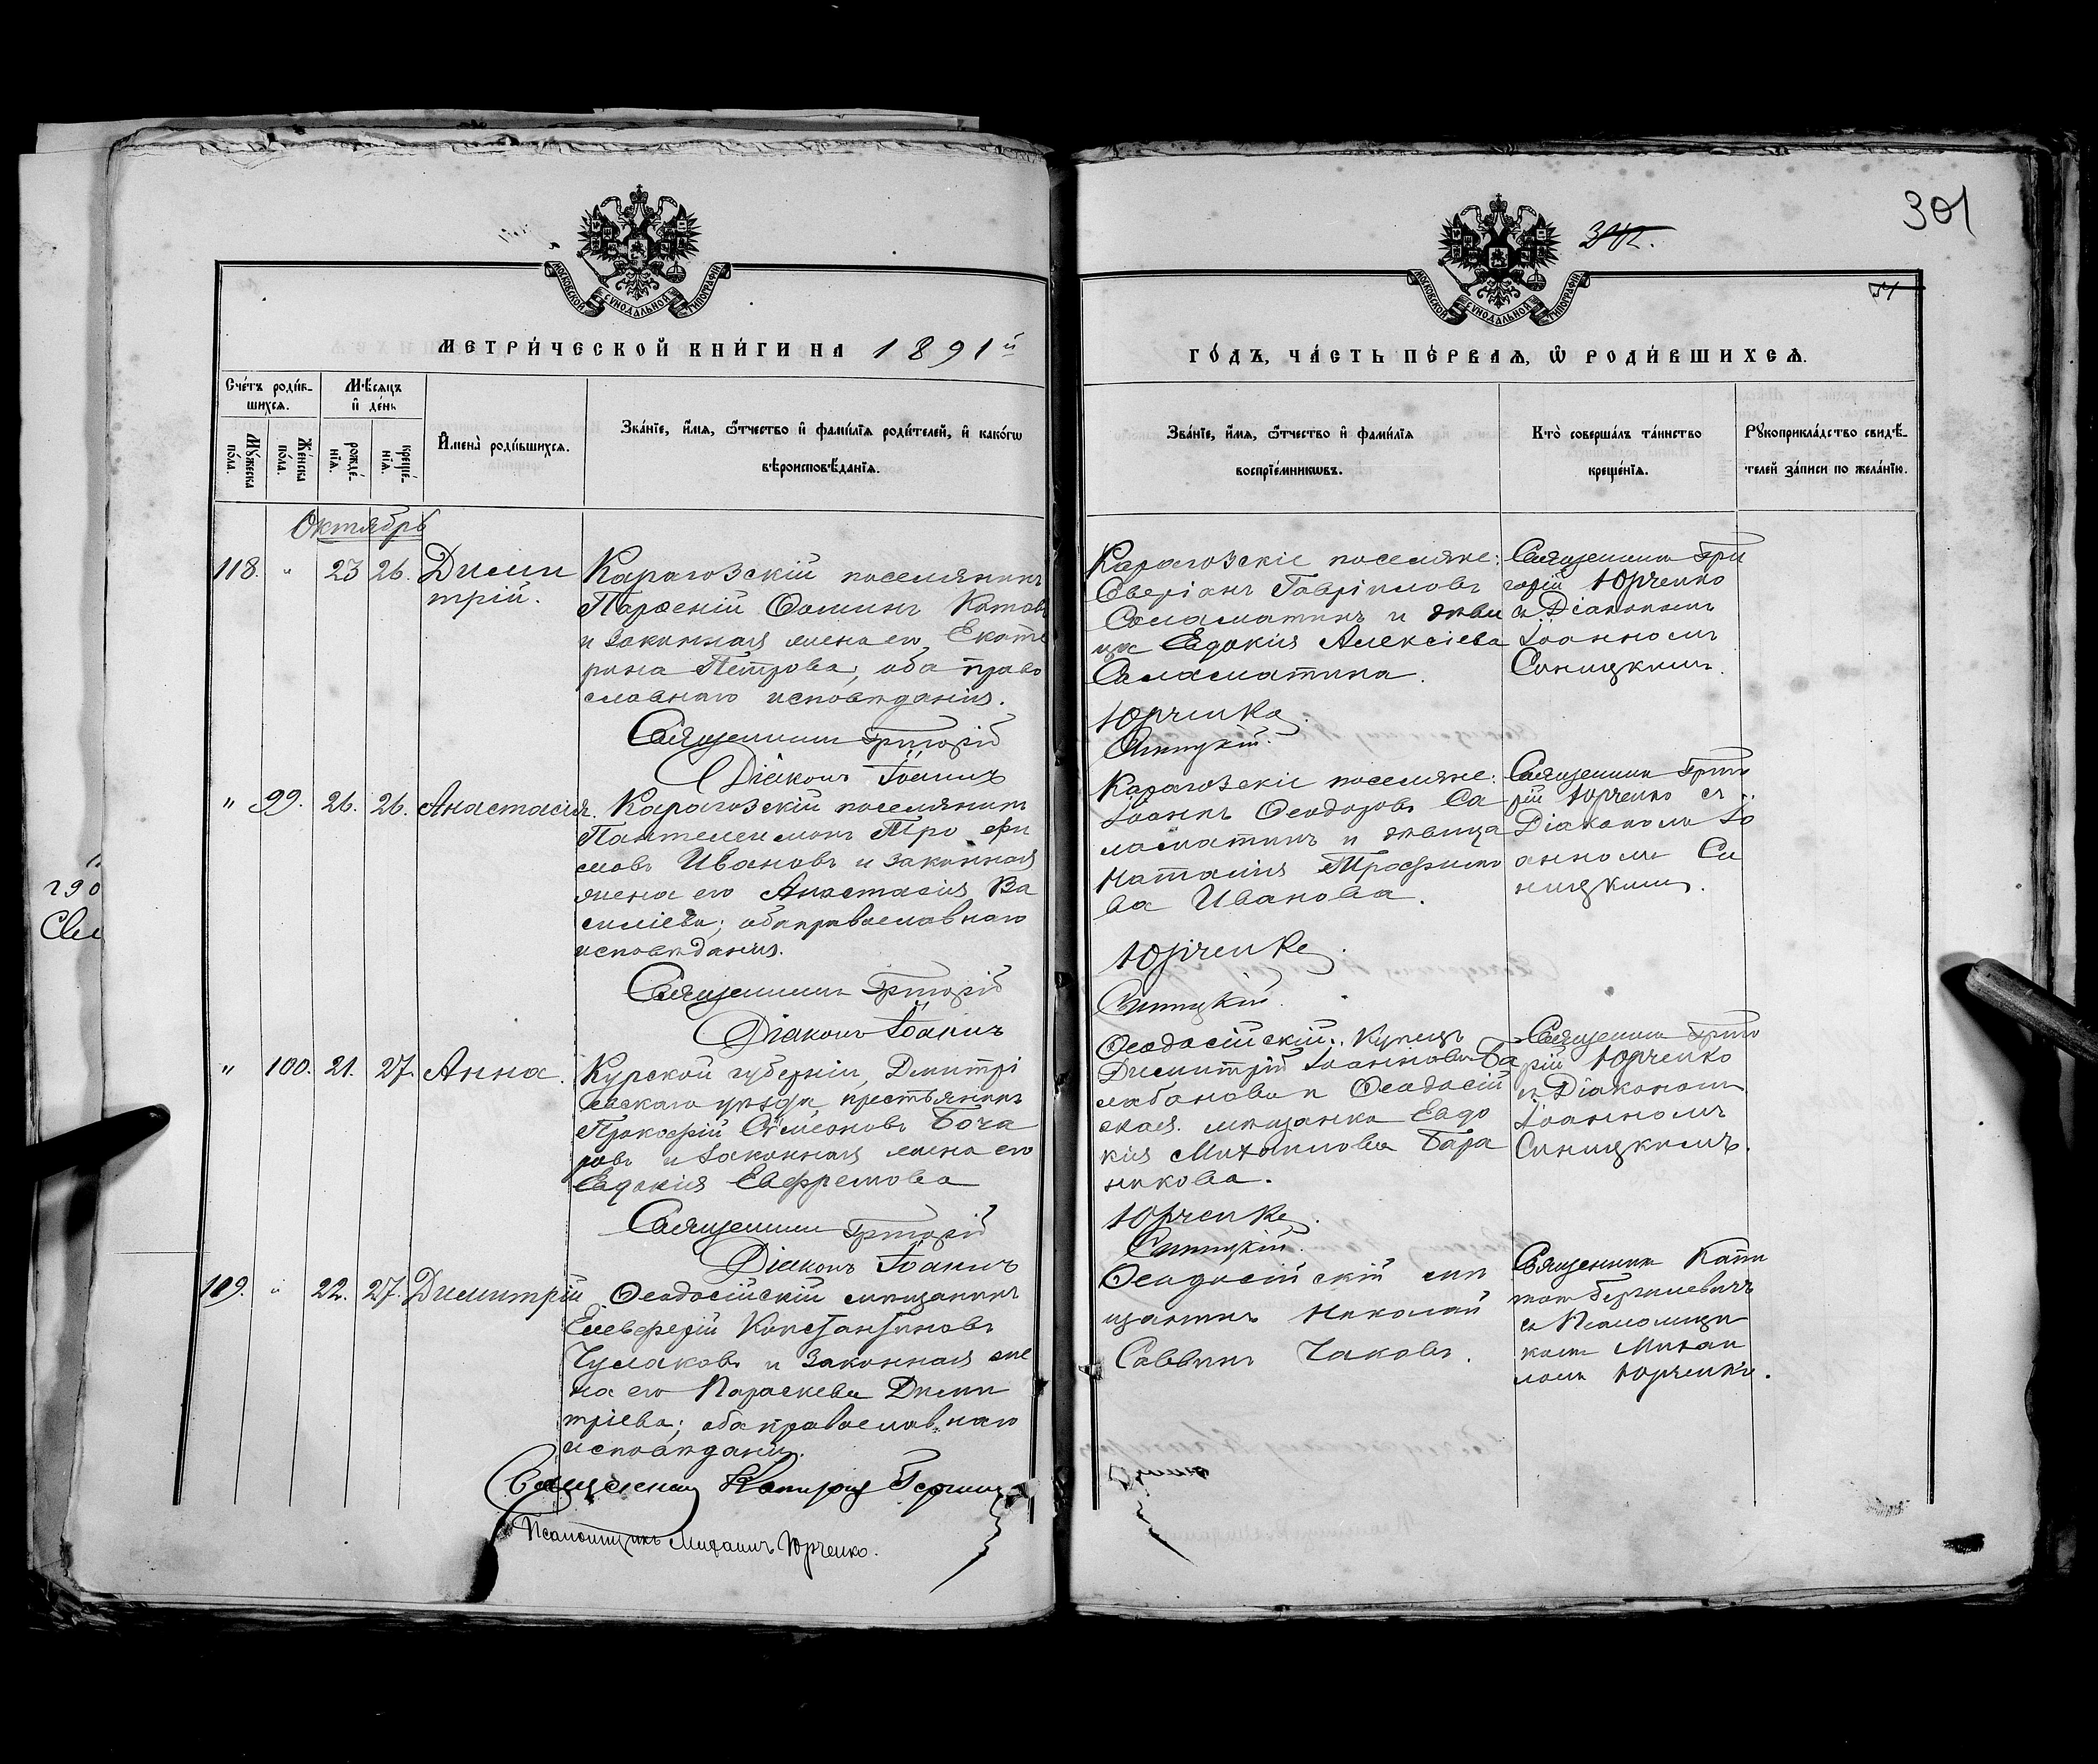 301
342.
51
МОСКОВСКОЙ СУНОДАЛЬНОЙ ТИПОГРАФІИ
МОСКОВСКОЙ СУНОДАЛЬНОЙ ТИПОГРАФІИ
МЕТРИ́ЧЕСКОЙ КНИ́ГИ НА 1891й
Сче́тъ роди́в-
шихсѧ.
Мѣ́сѧцъ
и҆ де́нь
Мꙋ́жеска
по́ла.
Же́нска
по́ла.
рожде́-
нїѧ.
креще́-
нїѧ.
И҆мена̀ роди́вшихсѧ.
Зва́нїе, и҆́мѧ, ѻ҆́тчество и҆ фами́лїѧ роди́телей, и҆ како́гѡ
вѣроисповѣ́данїѧ.
Октябрь
118. " 23 26. Дими
трій.
Карагозскій поселянинъ
Парѳеній Ѳоминъ Котовъ
и законная жена его Екате
рина Петрова; оба право
славнаго исповѣданія.
Священникъ Григорій
Діаконъ Іоаннъ
" 99. 26. 26. Анастасія.
Карагозскій поселянинъ
Пантелеимонъ Тро фи
мовъ Ивановъ и законная
жена его Анастасія Ва
силіева; оба православнаго
исповѣданія.
Священникъ Григорій
Діаконъ Іоаннъ
" 100. 21. 27. Анна.
Курской губерніи, Дмитрі
евскаго уѣзда, крестьянинъ
Прокофій Сѵмеоновъ Боча
ровъ и законная жена его
Евдокія Евфремова
Священникъ Григорій
Діаконъ Іоаннъ
119. " 22. 27. Димитрій
Ѳеодосійскій мѣщанинъ
Елевферій Константиновъ
Чумаковъ и законная же
на его Параскева Дими
тріева; оба православнаго
исповѣданія.
Священникъ
Псаломщикъ Михаилъ Юрченко.
ГО́ДЪ, ЧА́СТЬ ПЕ́РВАѦ, Ѽ РОДИ́ВШИХСѦ.
Зва́нїе, и҆́мѧ, ѻ҆́тчество и҆ фами́лїѧ
воспрїе́мникѡвъ.
Кто̀ соверша́лъ та́инство
креще́нїѧ.
Рꙋкоприкла́дство свидѣ́-
телей за́писи по жела́нїю.
Карагозскіе поселяне:
Северіанъ Гавріиловъ
Саламатинъ и дѣви
ца Евдокія Алексіева
Саламатина.
Юрченко.
Синицкій.
Священникъ Гри
горій Юрченко
съ Діакономъ
Іоанномъ
Синицкимъ.
Карагозскіе поселяне:
Іоаннъ Ѳеодоровъ Са
ламатинъ и дѣвица
Наталія Трофимо
ва Иванова.
Юрченко.
Синицкій.
Священникъ Григо
рій Юрченко съ
Діакономъ Іо
анномъ Си
ницкимъ.
Ѳеодосійскій купецъ
Димитрій Іоанновъ Ба
лабановъ и Ѳеодосій
ская мѣщанка Евдо
кія Михаилова Бара
никова.
Юрченко.
Синицкій.
Священникъ Григо
рій Юрченко
съ Діакономъ
Іоанномъ
Синицкимъ.
Ѳеодосійскій мѣ
щанинъ Николай
Саввинъ Чаковъ.
Священникъ
съ Псаломщи
комъ Михаи
ломъ Юрченко.